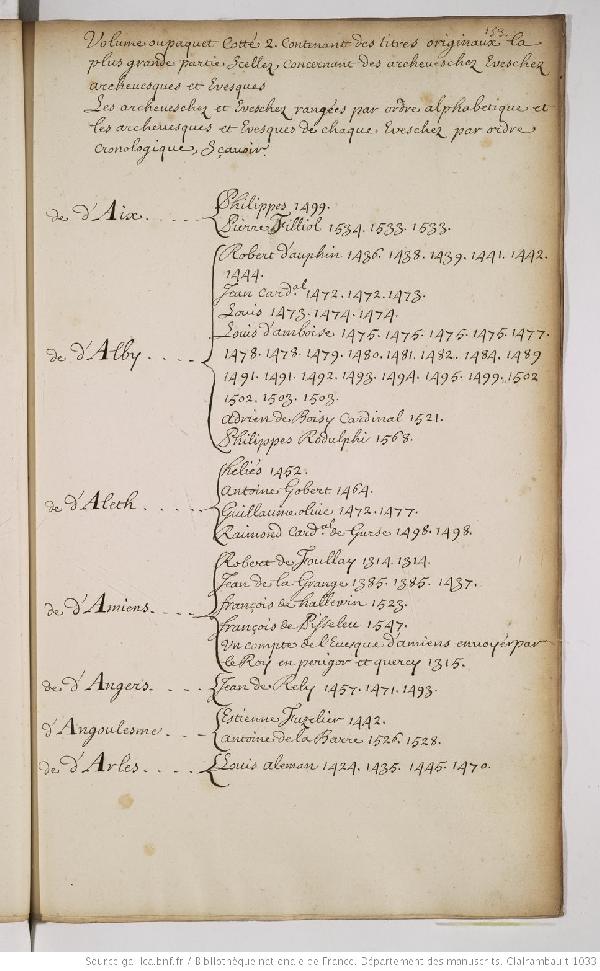 153.
Volume ou paquet Cotté 2. Contenant des titres originaux la
plus grande partie Scellez, Concernant des archeveschez Eveschez
archevesques et Evesques
Les archeveschez et Eveschez rangées par ordre alphabetique et
les archevesques et Evesques de chaque Eveschez par ordre
Cronologique, Sçavoir.
de d'Aix
Philippes 1499.
Pierre Filliol 1534. 1533. 1533.
de d'Alby
Robert d'auphin 1436. 1438. 1439. 1441. 1442.
1444.
Jean Card.al 1472. 1472. 1473.
Louis 1473. 1474. 1474.
Louis d'amboise 1475. 1475. 1475. 1475. 1477.
1478. 1478. 1479. 1480. 1481. 1482. 1484. 1489
1491. 1491. 1492. 1493. 1494. 1495. 1499. 1502
1502. 1503. 1503.
adrien de Boisy Cardinal 1521.
Philippes Rodulphi 1568.
de d'Aleth
heliés 1452.
antoine Gobert 1464.
Guillaume 1472. 1477.
Raimond Card.al de Gurse 1498. 1498.
de d'Amiens
Robert de Foullay 1314. 1314.
Jean de la Grange 1385. 1385. 1437.
françois de hallevin 1523.
françois de Pisseleu 1547.
un compte de l'Evesque d'amiens envoyé par
le Roy en perigor et quercy 1315.
de d'Angers
Jean de Rely 1457. 1471. 1493.
d'Angoulesme
Estienne 1442.
antoine de la Barre 1526. 1528.
de d'Arles
Louis aleman 1424. 1435. 1445. 1470.
Source gallica.bnf.fr / Bibliothèque nationale de France. Département des manuscrits. Clairambault 1033